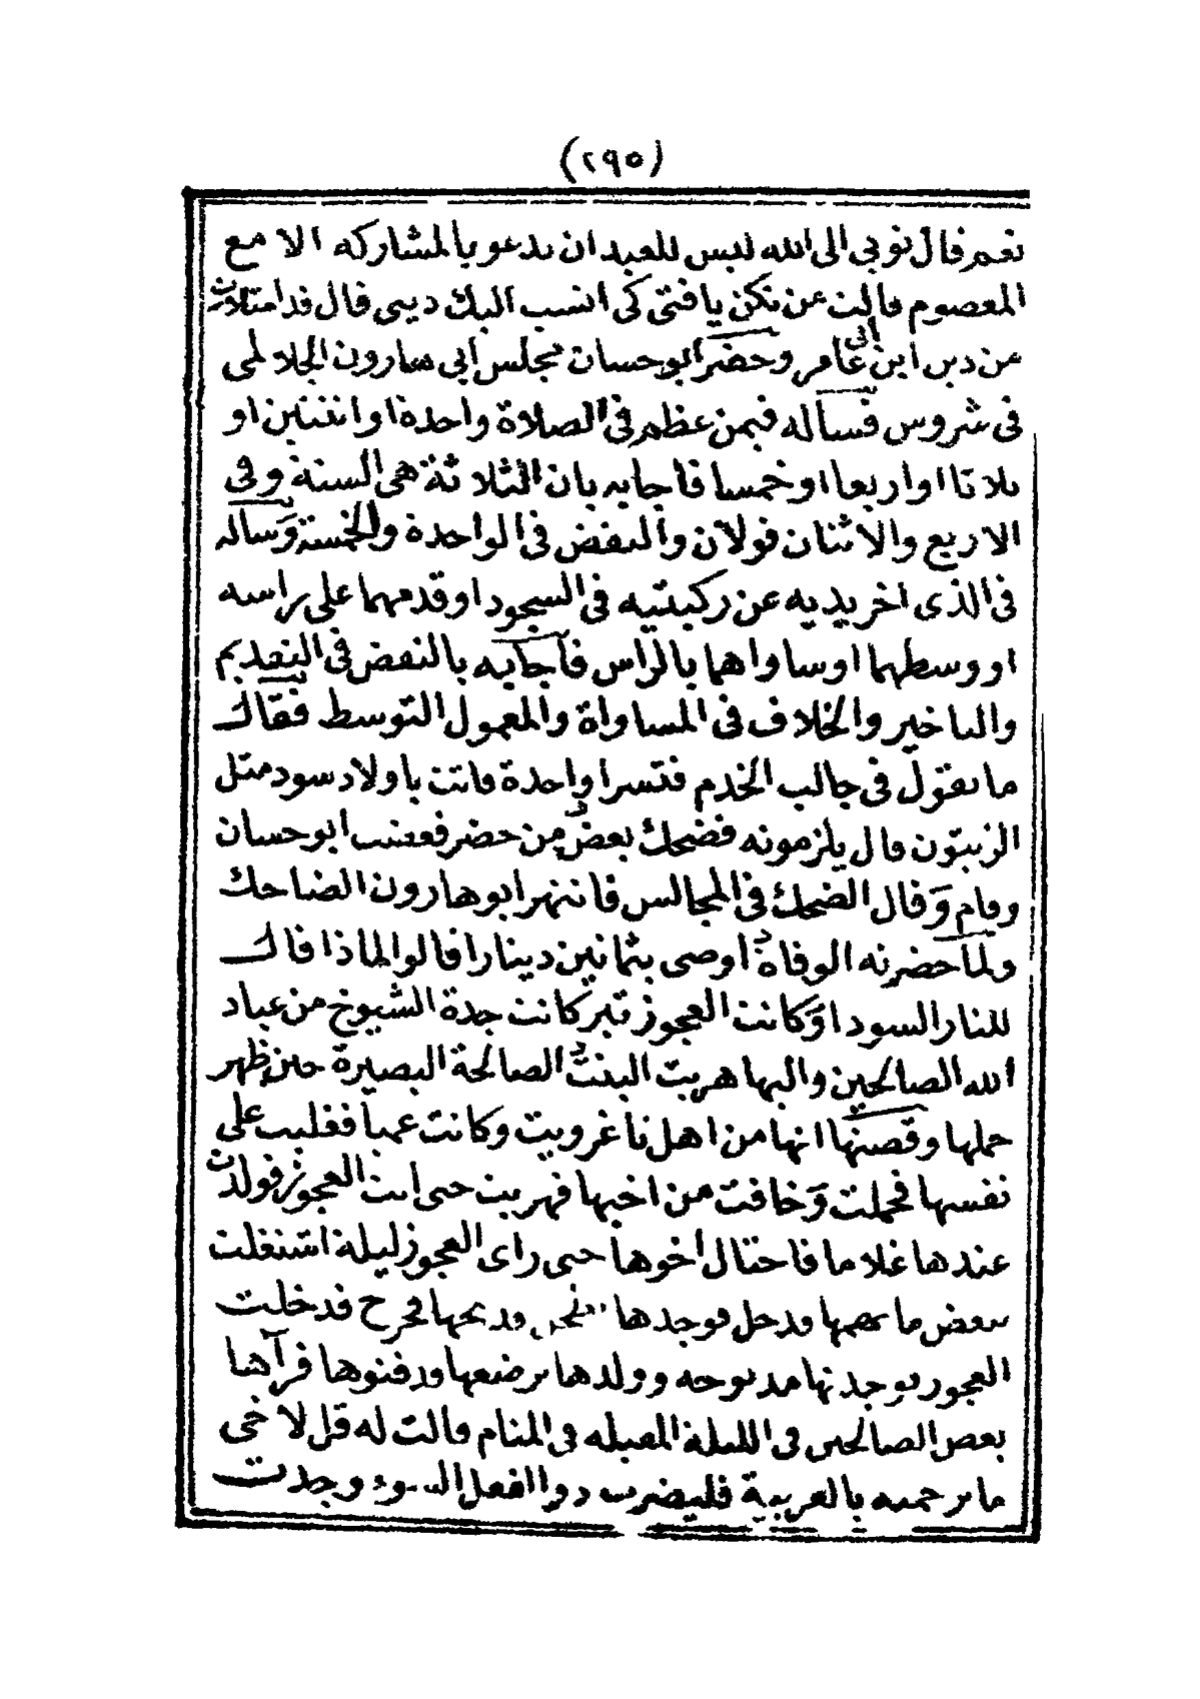 (٢٩٥)
نعم قال توبي الى الله ليس للعبد ان يدعو بالمشاركه الا مع
المعصوم قالت عن تكن يا فتى كى انسب اليك دينى قال قد امتلات
من دين ابن ابى عامر وحضر ابو حسان مجلس ابى هارون الجلالمى
فى شروس فسأله فيمن عظم فى الصلاة واحدة او اثنتين او
ثلاثا او اربعا او خمسا فأجابه بان الثلاثة هى السنة وفى
الاربع والاثنتان قولان والنقض فى الواحدة والخمسة وسأله
فى الذى اخر يديه عن ركبتيه فى السجود او قدمهما على راسه
او وسطهما او ساواهما بالراس فأجابه بالنقض فى التقديم
والتاخير والخلاف فى المساواة والمعمول التوسط فقال
ما تقول فى جالب الخدم فتسرا واحدة فاتت باولاد سود مثل
الزيتون قال يلزمونه فضحك بعض من حضر فغضب ابو حسان
وقام وقال الضحك فى المجالس فانتهر ابو هارون الضاحك
ولما حضرته الوفاة اوصى بثمانين دينارا قالوا لماذا قال
للنار السودا وكانت العجوز تبركانت جدة الشيوخ من عباد
الله الصالحين واليها هربت البنت الصالحة البصيرة حين ظهر
حملها وقصتها انها من اهل تاغرويت وكانت عميا فغلب على
نفسها فحملت وخافت من اخيها فهربت حتى اتت العجوز فولدت
عندها غلاما فاحتال اخوها حتى راى العجوز ليلة اشتغلت
ببعض ما يهمها ودخل فوجدها وذبحها فخرج فدخلت
العجوز فوجدتها مذبوحه وولدها يرضعها ودفنوها فرآها
بعض الصالحين فى الليلة المقبله فى المنام قالت له قل لاخى
ما ترجمته بالعربية فليضرب ذو الفعل السوء وجدت